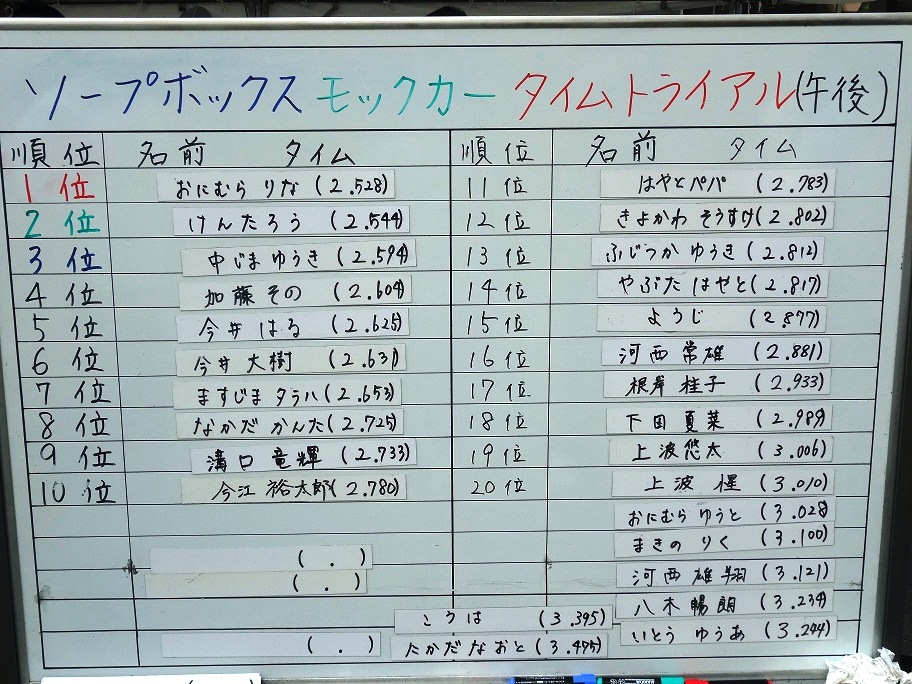 ソープボックス モックカー タイムトライアル(午後)
順位 名前 タイム
1位 おにむら りな (2.528)
2位 けんたろう (2.544)
3位 中じま ゆうき (2.594)
4位 加藤 その (2.604)
5位 今井 はる (2.625)
6位 今井 大樹 (2.631)
7位 ますじま タラハ (2.653)
8位 なかだ かんた (2.725)
9位 溝口 竜輝 (2.733)
10位 今江 裕太郎 (2.780)
( . )
( . )
( . )
順位 名前 タイム
11位 はやとパパ (2.783)
12位 きよかわ そうすけ (2.802)
13位 ふじつか ゆうき (2.812)
14位 やぶた はやと (2.817)
15位 ようじ (2.877)
16位 河西 常雄 (2.881)
17位 根岸 桂子 (2.933)
18位 下田 夏菜 (2.989)
19位 上波 悠太 (3.006)
20位 上波 惺 (3.010)
おにむら ゆうと (3.028)
まきの りく (3.100)
河西 雄翔 (3.121)
八木 暢朗 (3.234)
いとう ゆうあ (3.244)
こうは (3.395)
たかだ なおと (3.475)